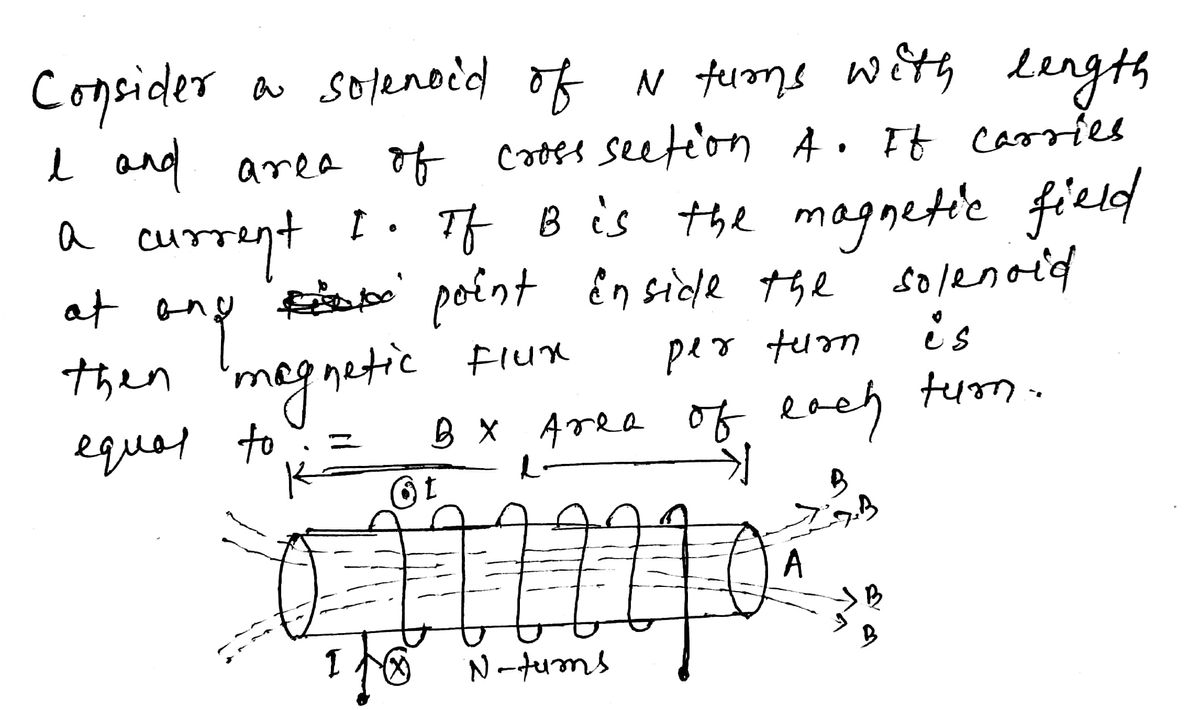 Consider a solenoid of N turns with length
l and area of cross section A. It carries
a current I. If B is the magnetic field
at any point inside the solenoid
then magnetic Flux per turn is
equal to : = B x Area of each turn.
l
I
B
B
A
B
B
I
N-turns